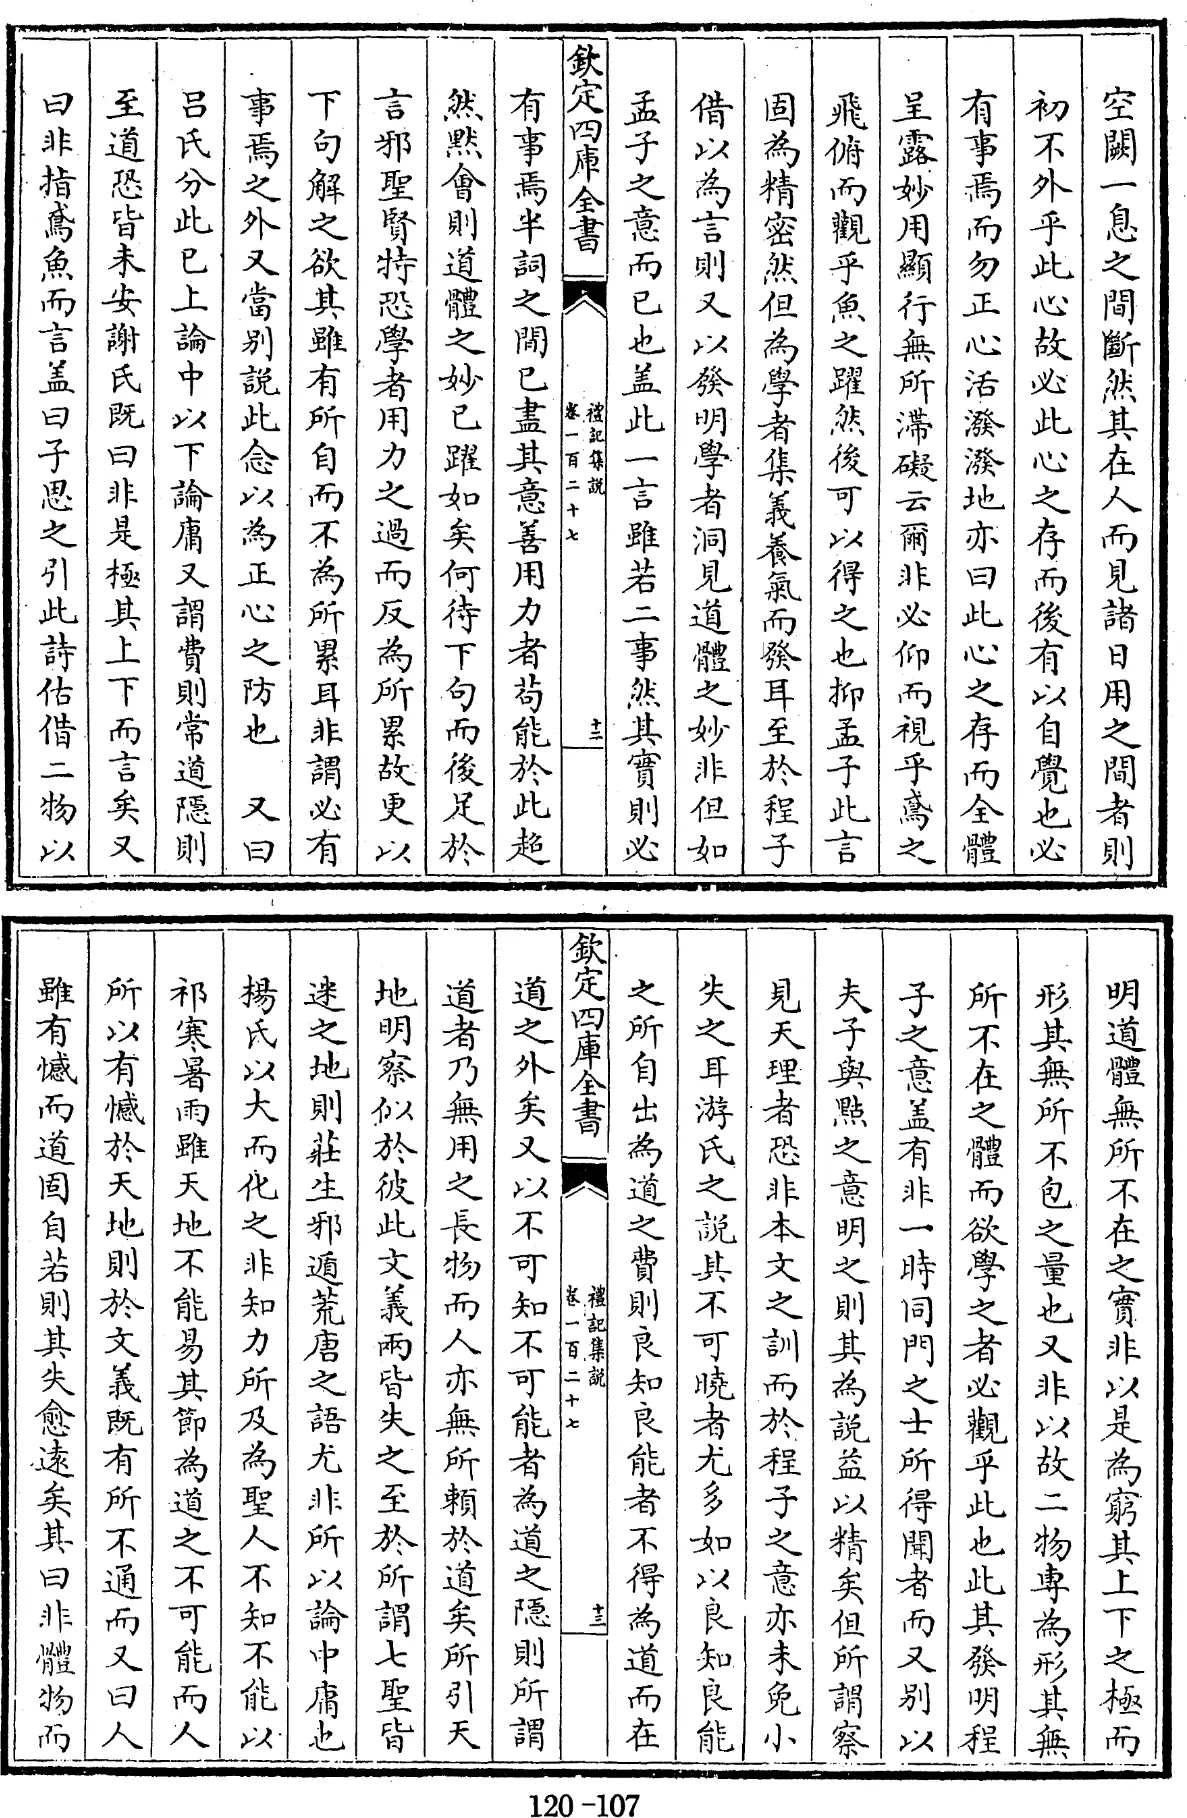 空闕一息之間斷然其在人而見諸日用之間者則
初不外乎此心故必此心之存而後有以自覺也必
有事焉而勿正心活潑潑地亦曰此心之存而全體
呈露妙用顯行無所滯礙云爾非必仰而視乎鳶之
飛俯而觀乎魚之躍然後可以得之也抑孟子此言
固為精密然但為學者集義養氣而發耳至於程子
借以為言則又以發明學者洞見道體之妙非但如
孟子之意而已也盖此一言雖若二事然其實則必
欽定四庫全書
禮記集說
卷一百二十七
十二
有事焉半詞之間已盡其意善用力者茍能於此超
然默會則道體之妙已躍如矣何待下句而後足於
言邪聖賢特恐學者用力之過而反為所累故更以
下句解之欲其雖有所自而不為所累耳非謂必有
事焉之外又當别說此念以為正心之防也　又曰
吕氏分此已上論中以下論庸又謂費則常道隱則
至道恐皆未安謝氏既曰非是極其上下而言矣又
曰非指鳶魚而言盖曰子思之引此詩估借二物以
明道體無所不在之實非以是為窮其上下之極而
形其無所不包之量也又非以故二物專為形其無
所不在之體而欲學之者必觀乎此也此其發明程
子之意盖有非一時同門之士所得聞者而又别以
夫子與㸃之意明之則其為說益以精矣但所謂察
見天理者恐非本文之訓而於程子之意亦未免小
失之耳游氏之說其不可曉者尤多如以良知良能
之所自出為道之費則良知良能者不得為道而在
欽定四庫全書
禮記集說
卷一百二十七
十三
道之外矣又以不可知不可能者為道之隱則所謂
道者乃無用之長物而人亦無所賴於道矣所引天
地明察似於彼此文義兩皆失之至於所謂七聖皆
迷之地則莊生邪遁荒唐之語尤非所以論中庸也
楊氏以大而化之非知力所及為聖人不知不能以
祁寒暑雨雖天地不能易其節為道之不可能而人
所以有憾於天地則於文義既有所不通而又曰人
雖有憾而道固自若則其失愈逺矣其曰非體物而
120-107